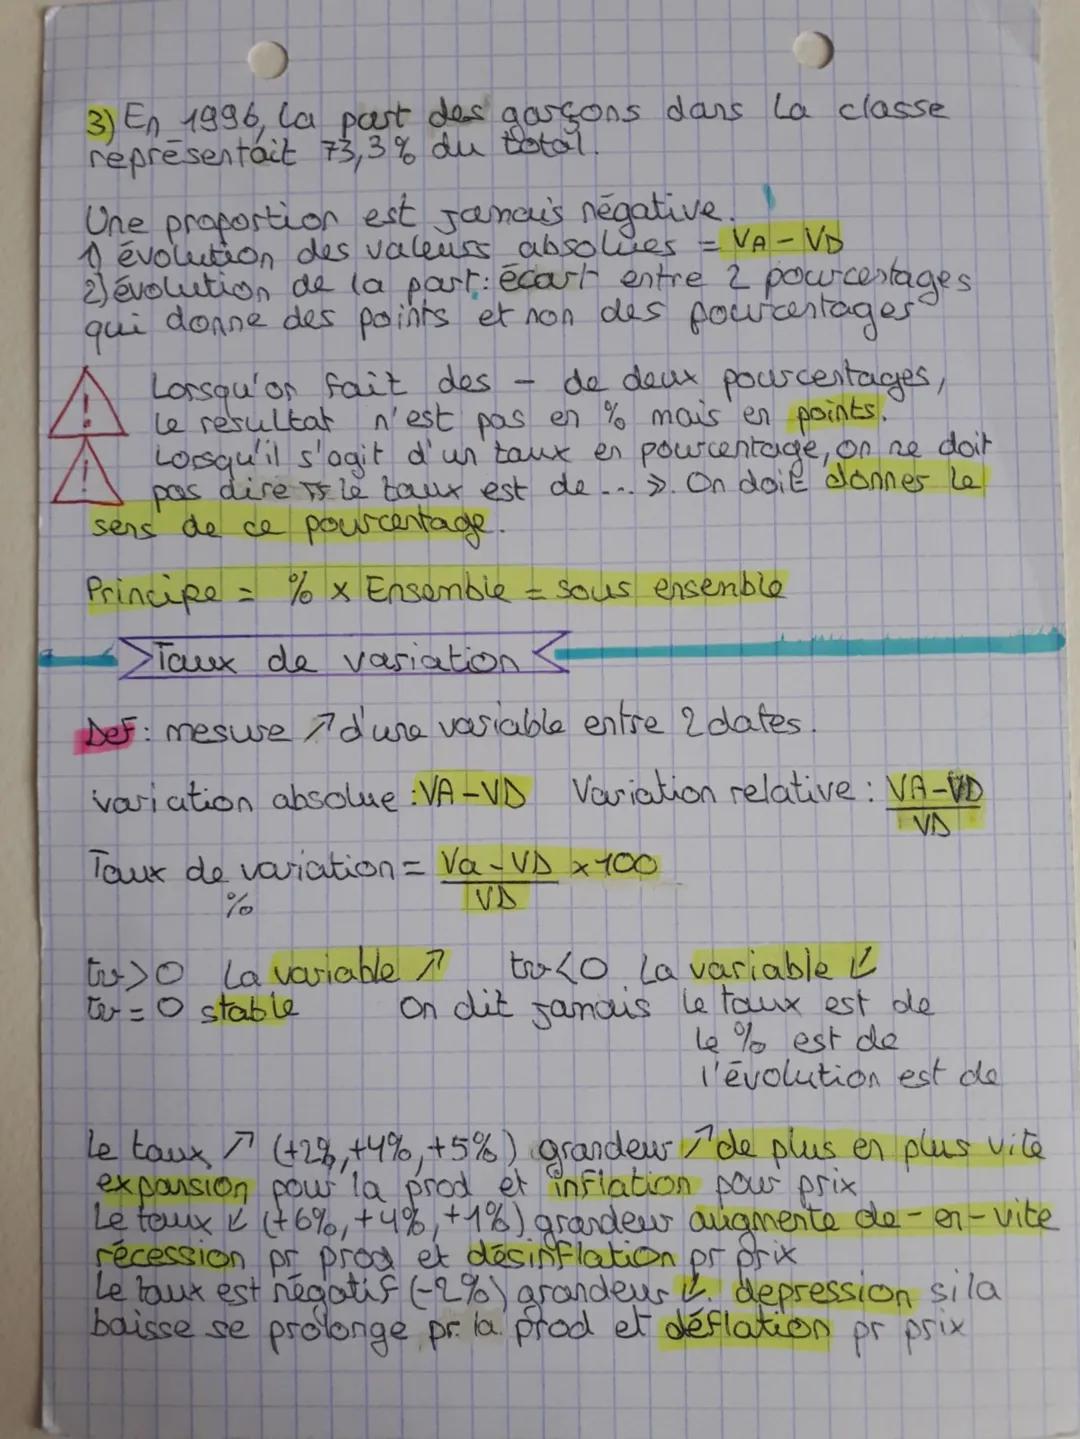 3) En 1996, la part des garçons dans la classe
représentait 73,3% du total.
Une proportion est jamais négative.
1) évolution des valeurs absolues = VA - VD
2) évolution de la part : écart entre 2 pourcentages
qui donne des points et non des pourcentages
Lorsqu'on fait des - de deux pourcentages,
le resultat n'est pas en % mais en points.
Lorsqu'il s'agit d'un taux en pourcentage, on ne doit
pas dire « le taux est de ... ». On doit donner le
sens de ce pourcentage.
Principe = % x Ensemble = sous ensemble
Taux de variation
Def : mesure ↗ d'une variable entre 2 dates.
variation absolue : VA-VD Variation relative : VA-VD
VD
Taux de variation = Va - VD x 100
% VD
tv>0 La variable ↗ tv<0 La variable ↙
tv = 0 stable On dit jamais le taux est de
le % est de
l'évolution est de
Le taux ↗ (+2%, +4%, +5%) grandeur ↗ de plus en plus vite
expansion pour la prod et inflation pour prix
Le taux ↙ (+6%, +4%, +1%) grandeur augmente de - en - vite
récession pr prod et désinflation pr prix
Le taux est négatif (-2%) grandeur ↙. depression si la
baisse se prolonge pr la prod et déflation pr prix